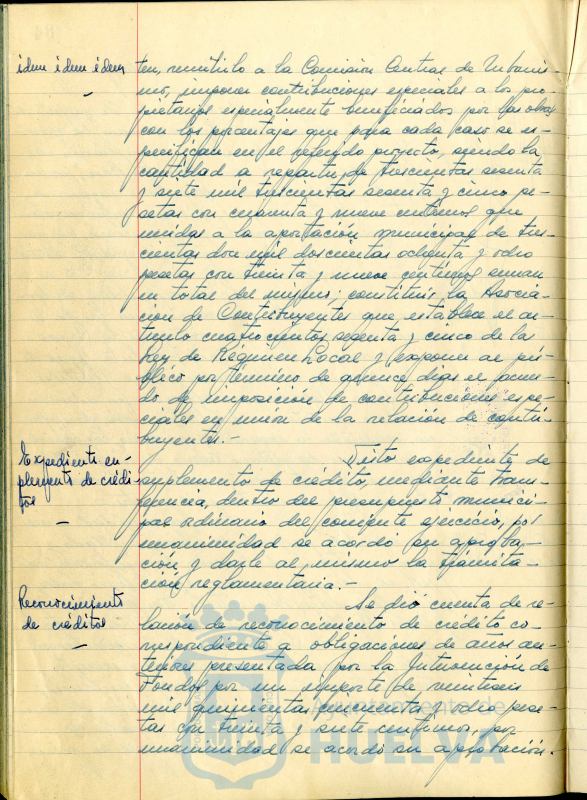 idem idem idem
ten, remitirlo a la Comisión Central de Urbanis-
mo, imponer contribuciones especiales a los pro-
pietarios especialmente beneficiados por las obras
con los porcentajes que para cada caso se es-
pecifican en el referido proyecto, siendo la
cantidad a repartir de trescientas sesenta
y siete mil trescientas sesenta y cinco pe-
setas con cuarenta y nueve centimos que
unidas a la aportación municipal de tres-
cientas dos mil doscientas ochenta y ocho
pesetas con treinta y nueve centimos suman
un total del mismo; constituir la Asocia-
cion de Contribuyentes que establece el ar-
tículo cuatrocientos sesenta y cinco de la
Ley de Régimen Local y exponer al pú-
blico por término de quince dias el acuer-
do de imposición de contribuciones espe-
ciales en unión de la relación de contri-
buyentes.-
Expediente su-
plemento de crédi-
tos
Visto expediente de
suplemento de crédito, mediante trans-
ferencia, dentro del presupuesto munici-
pal ordinario del corriente ejercicio, por
unanimidad se acordó su aproba-
ción y darle al mismo la tramita-
ción reglamentaria.-
Reconocimiento
de créditos
Se dió cuenta de re-
lación de reconocimiento de crédito co-
rrespondiente a obligaciones de años an-
teriores presentada por la Intervención de
Fondos por un importe de
mil quinientas cincuenta y ocho pese-
tas con treinta y siete centimos, por
unanimidad se acordó su aprobación.
Ayuntamiento de
HUELVA